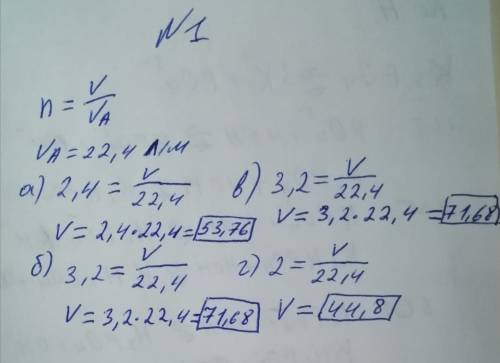 №1
n = V/VA
VA = 22,4 л/м
а) 2,4 = V/22,4
V = 2,4·22,4 = 53,76
б) 3,2 = V/22,4
V = 3,2·22,4 = 71,68
в) 3,2 = V/22,4
V = 3,2·22,4 = 71,68
г) 2 = V/22,4
V = 44,8